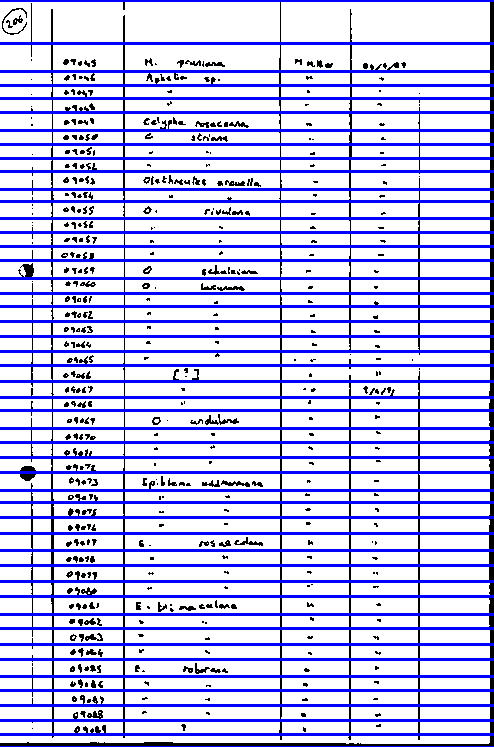 206
09045 H. pruniana M Miller
09046 Aphelia sp. " "
09047 " " "
09048 " " "
09049 Celypha rosaceana " "
09050 C striana " "
09051 " " " "
09052 " " " "
09053 Olethreutes arcuella " "
09054 " " " "
09055 O. rivulana " "
09056 " " " "
09057 " " " "
09058 " " " "
09059 O schulziana " "
09060 O. lacunana " "
09061 " " " "
09062 " " " "
09063 " " " "
09064 " " " "
09065 " " " "
09066 [?] " "
09067 " "
09068 " " "
09069 O. undulana " "
09070 " " " "
09071 " " " "
09072 " " " "
09073 Epiblema uddmanniana " "
09074 " " " "
09075 " " " "
09076 " " " "
09077 E. rosaecolana " "
09078 " " " "
09079 " " " "
09080 " " " "
09081 E. bimaculana " "
09082 " " " "
09083 " " " "
09084 " " " "
09085 E. roborana " "
09086 " " " "
09087 " " " "
09088 " " " "
09089 ? " "